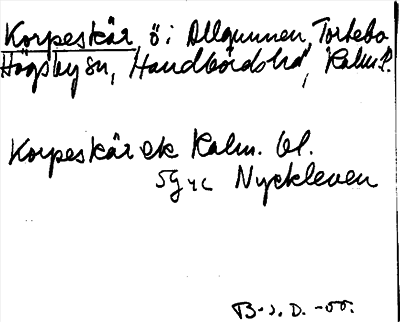 Korpeskär, ö i Allgunnen, Torlebo
Högsby sn, Handbörds hd, Kalm.l.
Korpeskär ek Kalm. bl.
5g yc Nyckleven
B-s. D. -55.